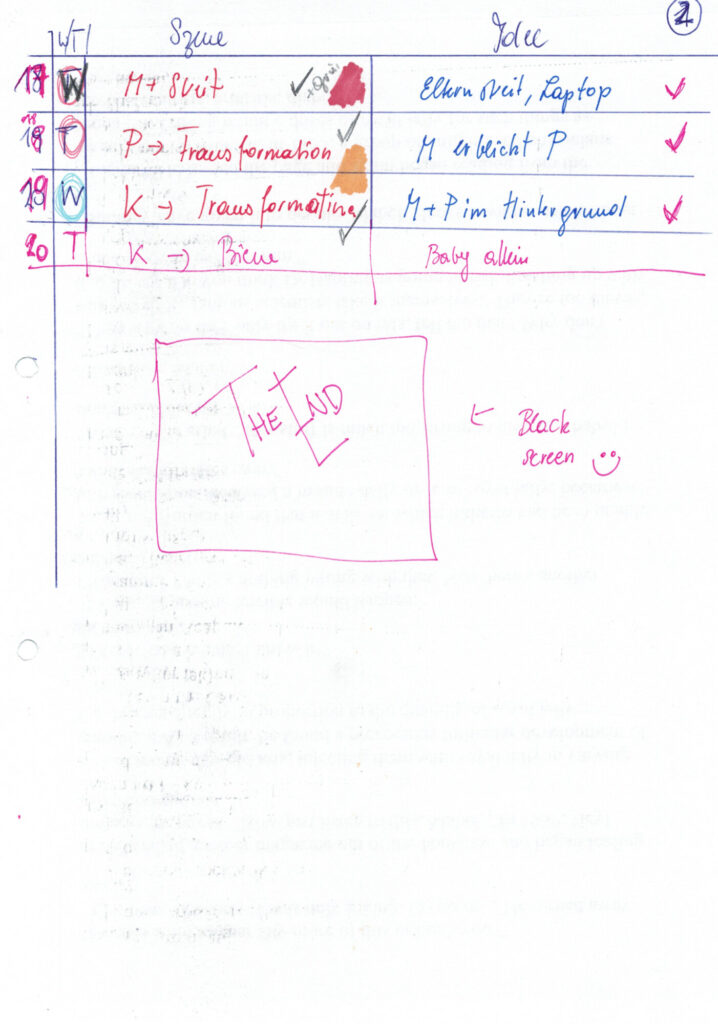 2
W/T Szene Idee
17 W M + Streit Elternstreit, Laptop
18 T P → Transformation M erblickt P
19 W K → Transformation M + P im Hintergrund
20 T K → Biene Baby allein
THE END
← Black
screen